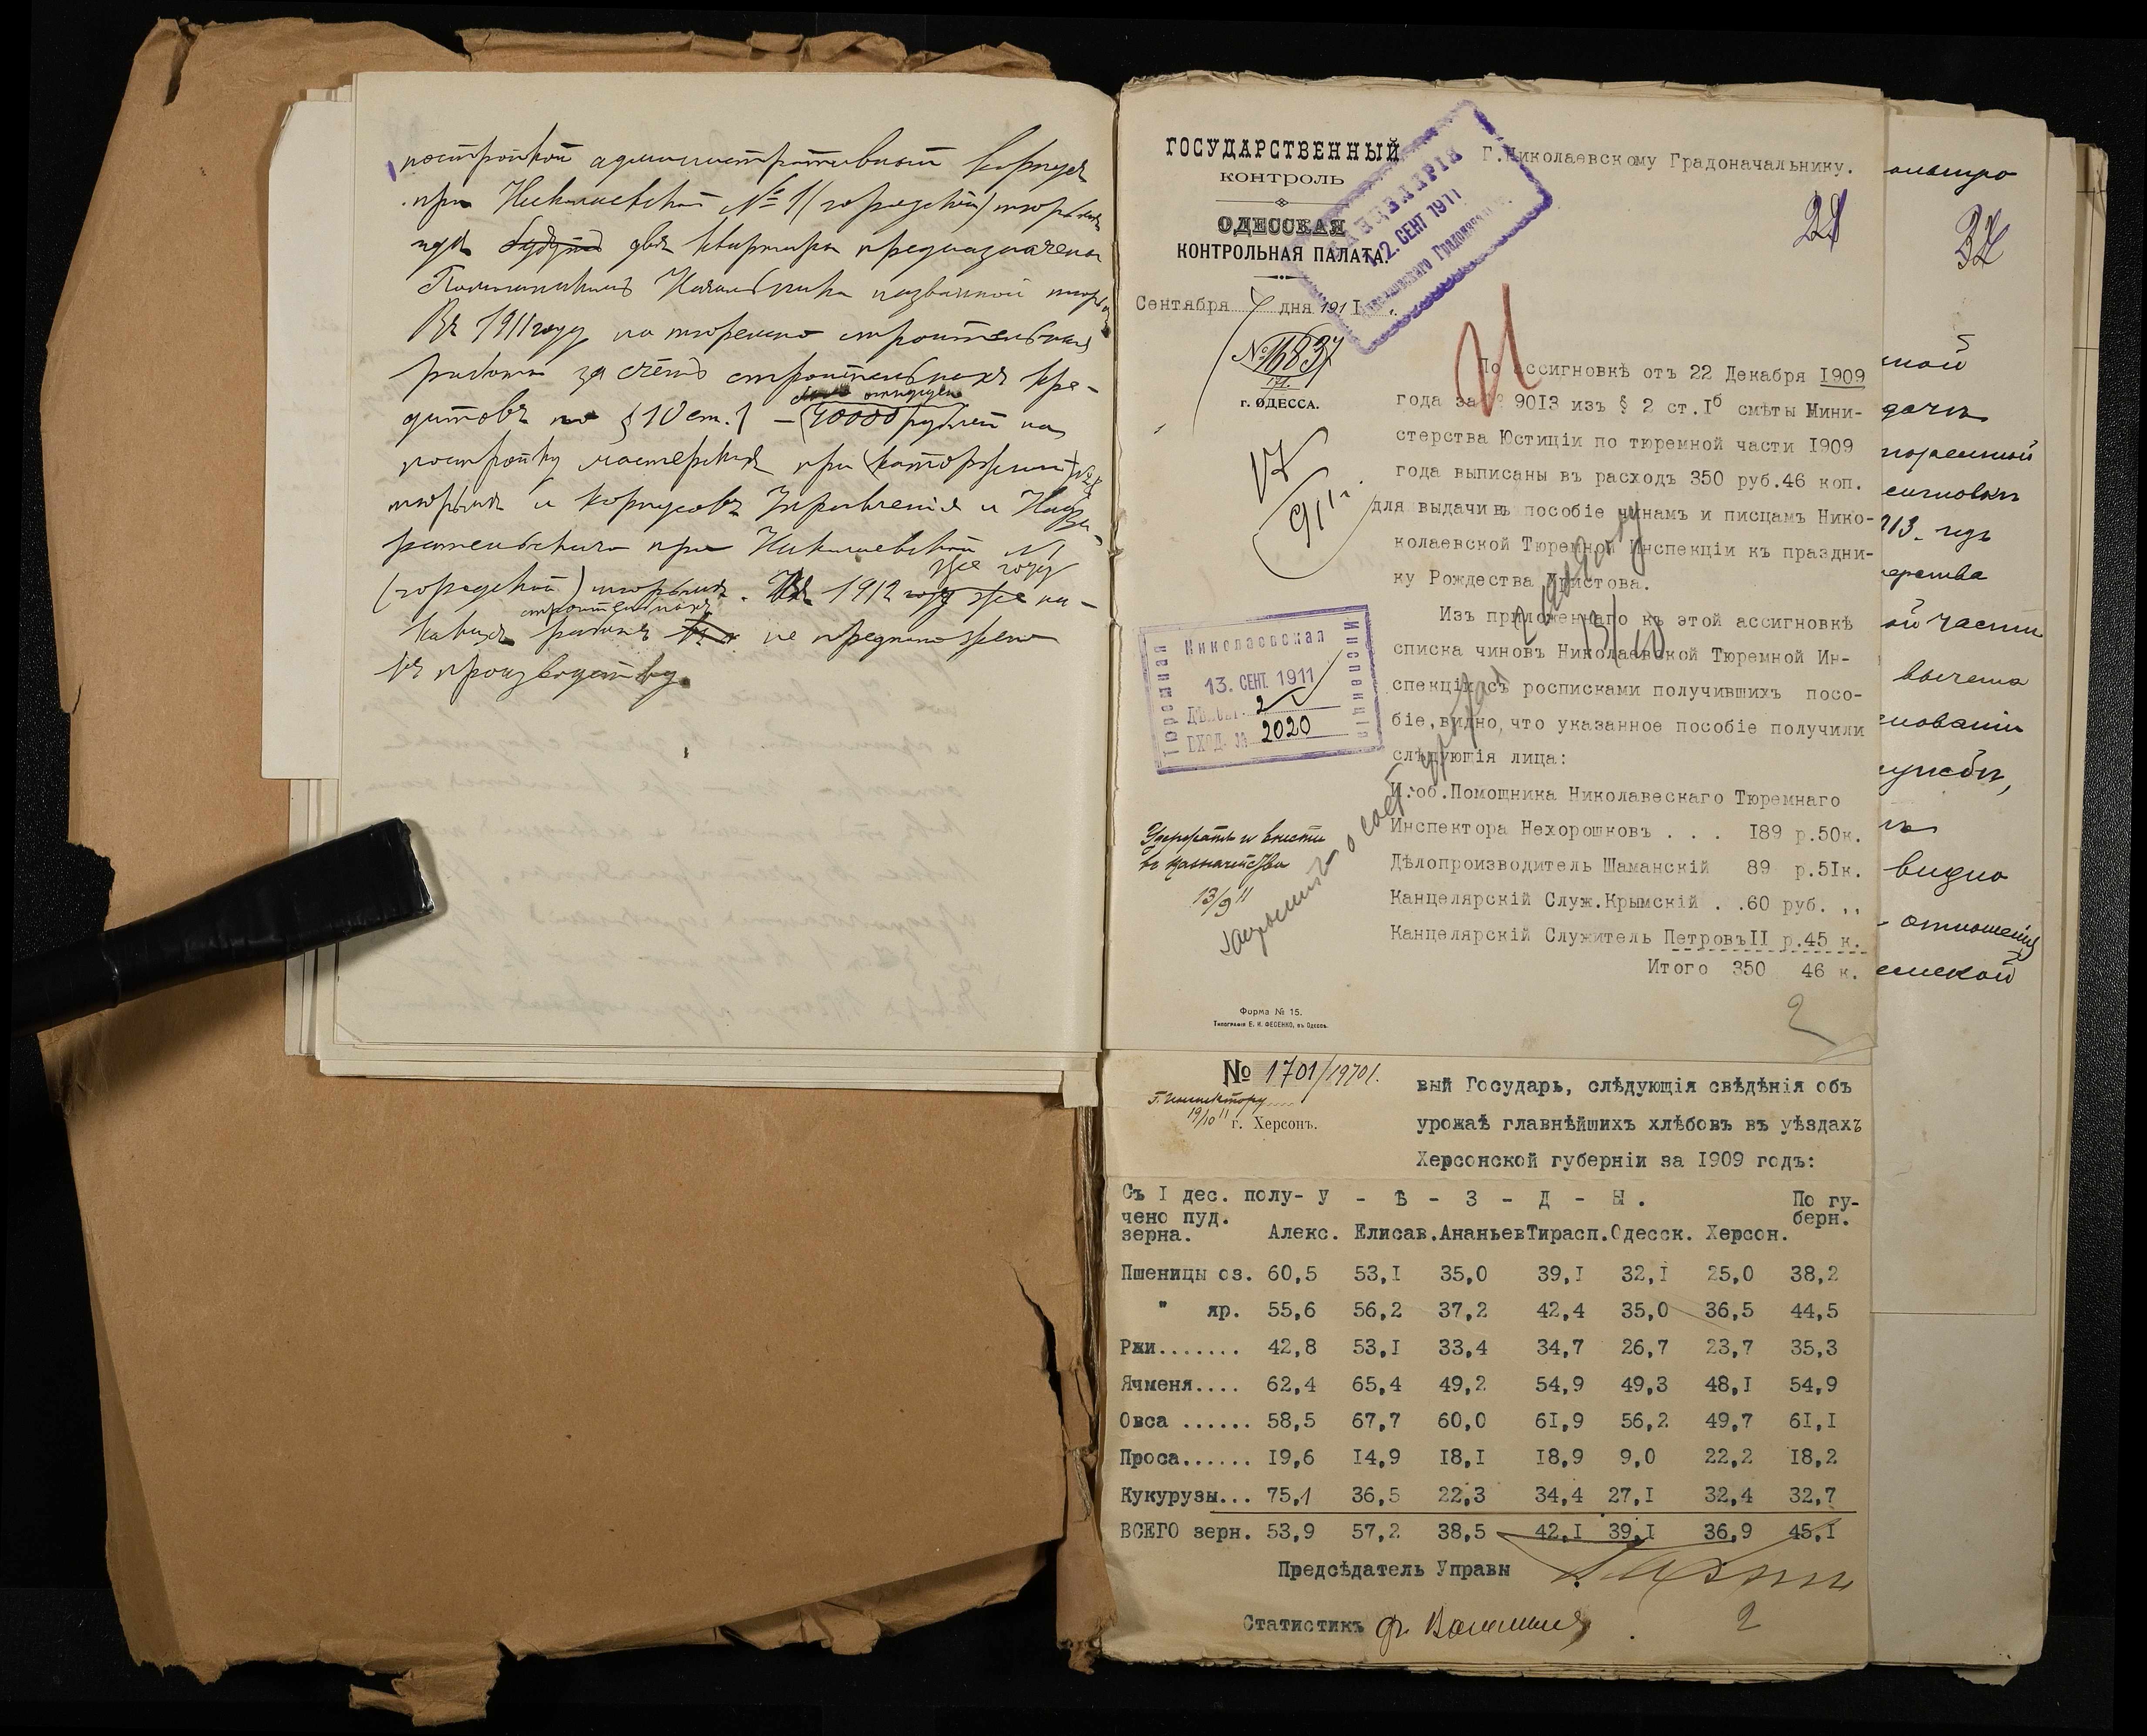 постройкой административный корпусъ
при Николаевской № 1 (городской) тюрьмѣ
гдѣ будутъ двѣ квартиры предназначены
Помощникамъ Начальника названной
Въ 1911 году по тюремно строительныя
работы за счетъ строительныхъ кре-
дитовъ по § 10 ст. 1 – 40000 рублей на
постройку мастерскихъ при (каторжной)
тюрьмѣ и корпусовъ Управленія и Надзи-
рательскаго при Николаевской № 1
(городской) тюрьмѣ. 1912 году же ни-
какихъ строительныхъ работъ не предположено
къ производству.
ГОСУДАРСТВЕННЫЙ
контроль
ОДЕССКАЯ
КОНТРОЛЬНАЯ ПАЛАТА.
Сентября 7 дня 191 I .
№ 16837
г. ОДЕССА.
КАНЦЕЛЯРІЯ
12. СЕНТ 1911
Николаевскаго Градоначальн.
Г.Николаевскому Градоначальнику.
По ассигновкѣ отъ 22 Декабря I909
года за № 90I3 изъ § 2 ст.Iб смѣты Мини-
стерства Юстиціи по тюремной части I909
года выписаны въ расходъ 350 руб.46 коп.
для выдачи въ пособіе чинамъ и писцамъ Нико-
колаевской Тюремной Инспекціи къ праздни-
ку Рождества Христова.
Изъ приложеннаго къ этой ассигновкѣ
списка чиновъ Николаевской Тюремной Ин-
спекціи съ росписками получившихъ посо-
біе,видно,что указанное пособіе получили
слѣдующія лица:
И.об.Помощника Николавескаго Тюремнаго
Инспектора Нехорошковъ . . . I89 р.50к.
Дѣлопроизводитель Шаманскій 89 р.5Iк.
Канцелярскій Служ.Крымскій . .60 руб. ,,
Канцелярскій Служитель ПетровъII р.45 к.
Итого 350 46 к.
2
Николаевская
Тюремная
Инспекція
13. СЕНТ 1911
ВХОД. № 2020
Удержать и внести
въ казначейство
13/9 11
Форма № 15.
Типографія Е. И. ФЕСЕНКО, въ Одессѣ.
мной
тюремной
913. годъ
ой части
вычета
службы,
видно
отношенія
№ 1701/19701.
Г. Инспектору
19/10 11
г. Херсонъ.
вый Государь, слѣдующія свѣдѣнія объ
урожаѣ главнѣйшихъ хлѣбовъ въ уѣздахъ
Херсонской губерніи за I909 годъ:
Съ I дес. полу- У - Ѣ - З - Д - Ы . По гу-
чено пуд. берн.
зерна. Алекс. Елисав.АнаньевТирасп.Одесск. Херсон.
Пшеницы оз. 60,5 53,I 35,0 39,I 32,I 25,0 38,2
" яр. 55,6 56,2 37,2 42,4 35,0 36,5 44,5
Ржи....... 42,8 53,I 33,4 34,7 26,7 23,7 35,3
Ячменя.... 62,4 65,4 49,2 54,9 49,3 48,I 54,9
Овса ...... 58,5 67,7 60,0 6I,9 56,2 49,7 6I,I
Проса...... I9,6 I4,9 I8,I I8,9 9,0 22,2 I8,2
Кукурузы... 75,1 36,5 22,3 34,4 27,I 32,4 32,7
ВСЕГО зерн. 53,9 57,2 38,5 42,I 39,I 36,9 45,I
Предсѣдатель Управы
Статистикъ
2